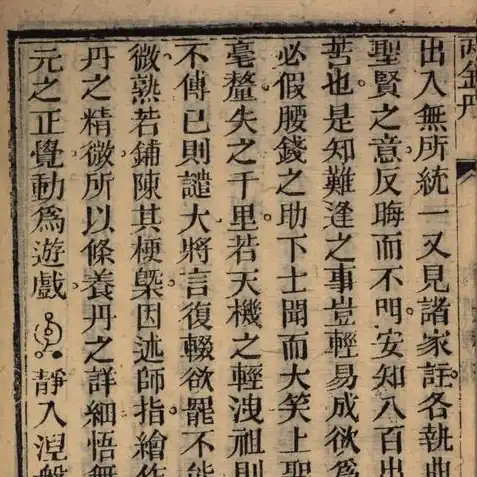 金丹
出入無所統一又見諸家註各執
聖賢之意反晦而不明安知八百出
苦也是知難逢之事豈輕易成欲為
必假腰錢之助下士聞而大笑上聖
毫釐失之千里若天機之輕洩祖則
不傳已則譴大將言復輟欲罷不能
微熟若鋪陳其梗槩因述師指繪作
丹之精微所以條養丹之詳細悟無
元之正覺動爲遊戲靜入涅盤